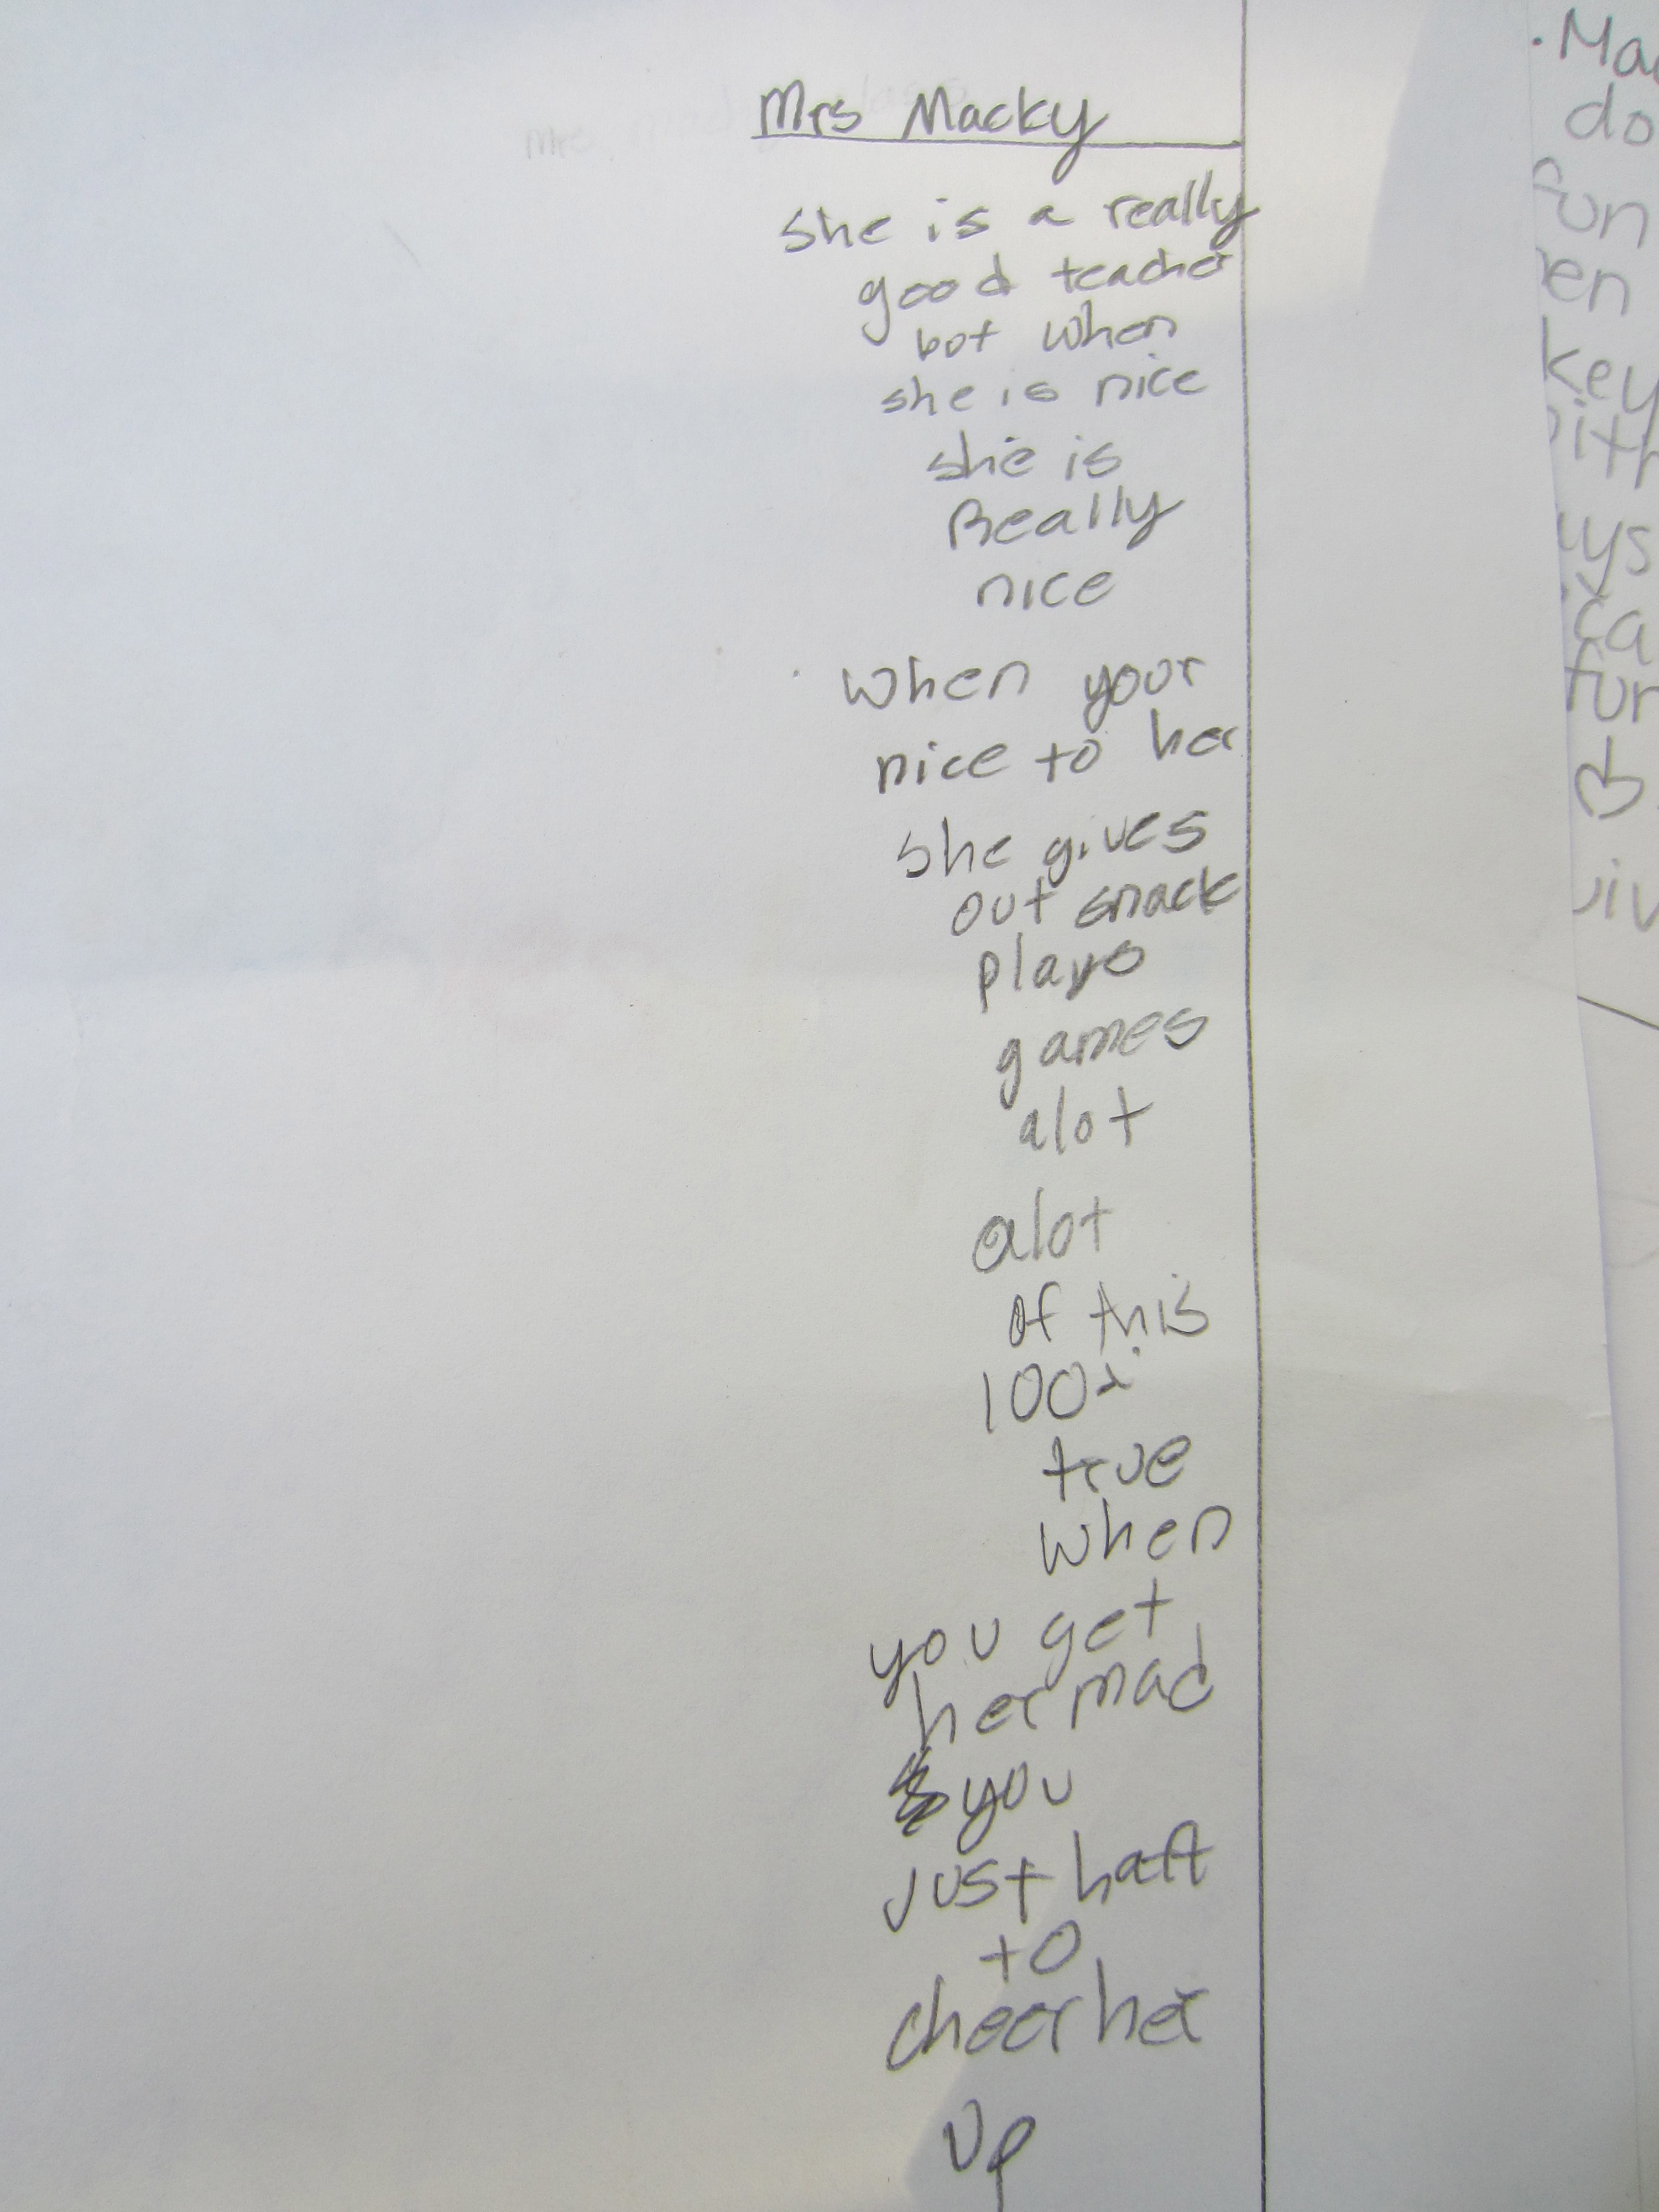 Mrs Macky
she is a really
good teacher
bot when
she is nice
she is
Really
nice
when your
nice to her
she gives
out snack
plays
games
alot
alot
of this
100%
true
when
you get
her mad
you
just haft
to
cheer her
up
do
key